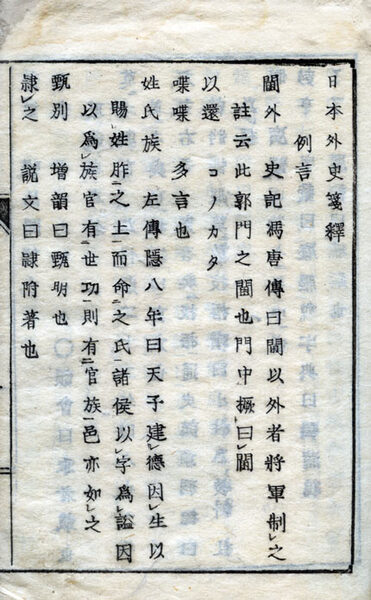 日本外史箋釋
例言
閫外　史記馮唐傳曰閫以外者將軍制レ之
註云此郭門之閫也門中橛曰レ閫
以還　コノカタ
喋喋　多言也
姓氏族　左傳隱八年曰天子建レ德因レ生以
賜レ姓胙二之土一而命二之氏一諸侯以レ字爲レ謚因
以爲レ族官有二世功一則有二官族一邑亦如レ之
甄別　增韻曰甄明也
隷レ之　説文曰隷附著也